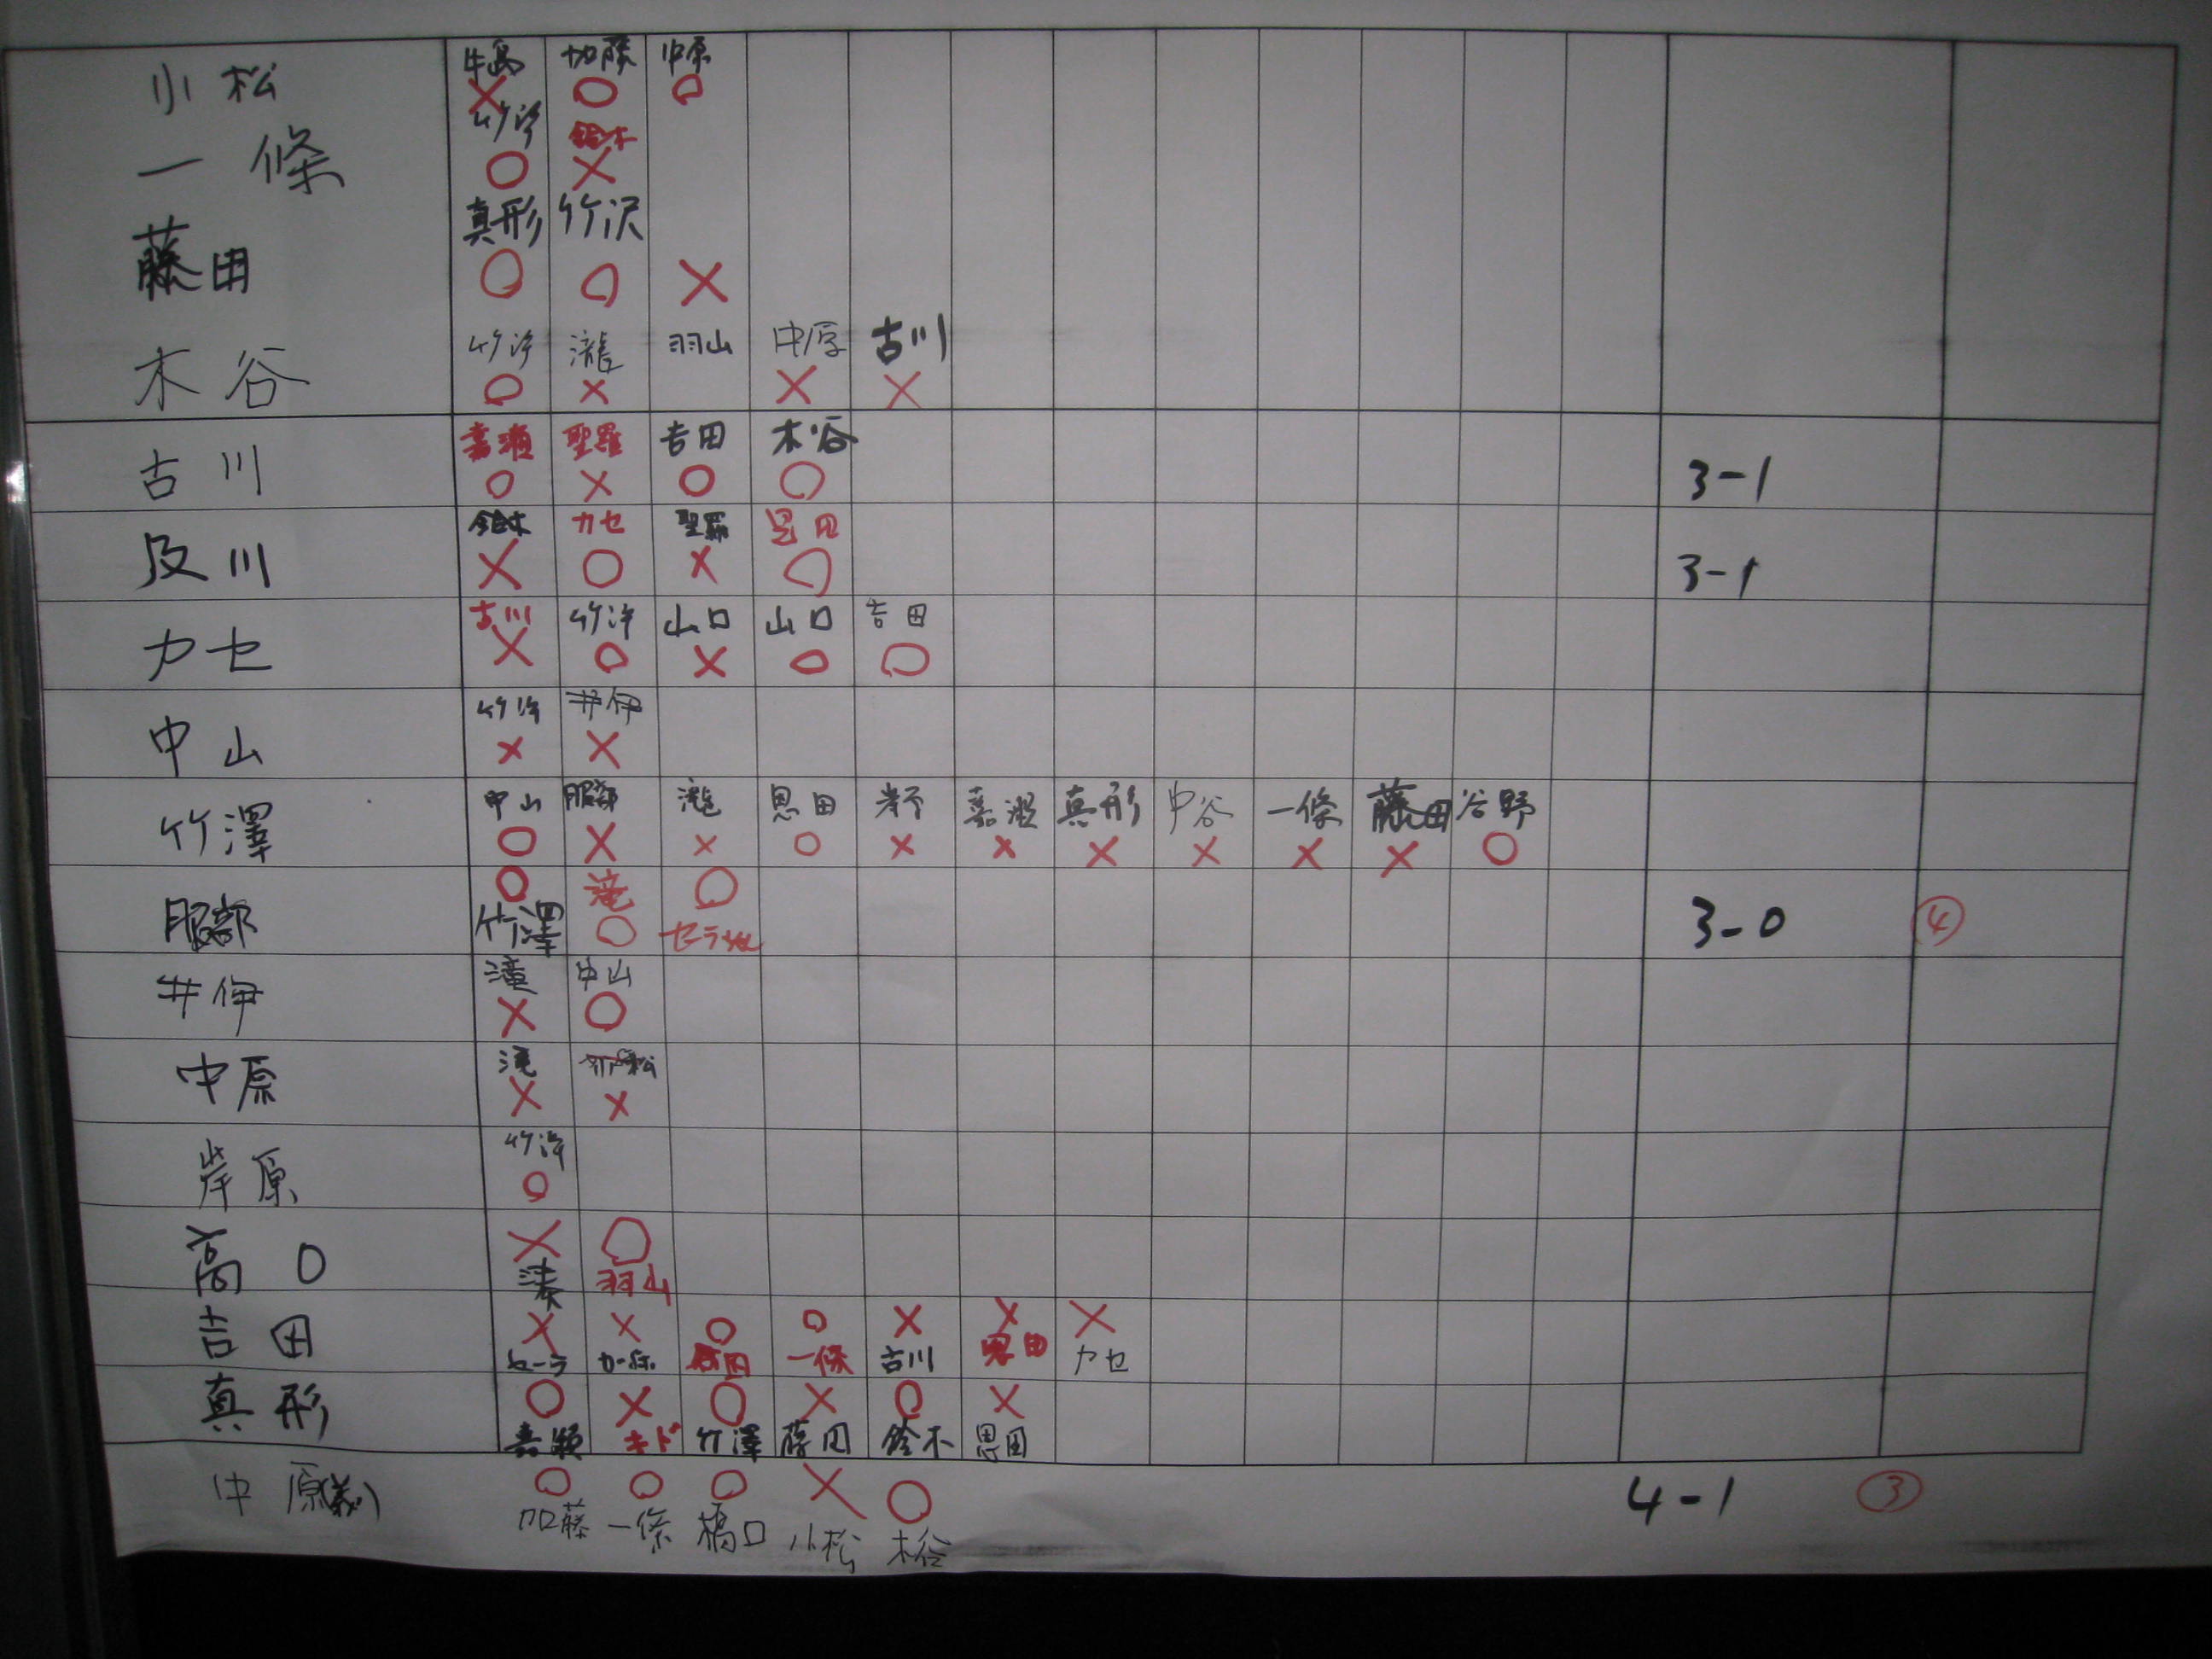 小松 牛島 加藤 中原
× ○ ○
一條 竹沢 鈴木
○ ×
藤田 真形 竹沢
○ ○ ×
木谷 竹沢 瀧 羽山 中原 古川
○ × × ×
古川 嘉瀬 聖羅 吉田 木谷 3-1
○ × ○ ○
及川 鈴木 カセ 聖羅 恩田 3-1
× ○ × ○
カセ 古川 竹沢 山口 山口 吉田
× ○ × ○ ○
中山 竹沢 井伊
× ×
竹澤 中山 服部 滝 恩田 嘉瀬 真形 中谷 一條 藤田 谷野
○ × × ○ × × × × × × ○
○ 滝 ○
服部 竹澤 ○ セーラ 3-0 ④
井伊 滝 中山
× ○
中原 滝 小松
× ×
岸原 竹沢
○
× ○
高口 湊 羽山
× × ○ ○ × × ×
吉田 セーラ 一條 古川 恩田 カセ
○ × ○ × ○ ×
真形 嘉瀬 キド 竹澤 藤田 鈴木 恩田
○ ○ ○ × ○
中原(義) 加藤 一條 橋口 小松 木谷 4-1 ③